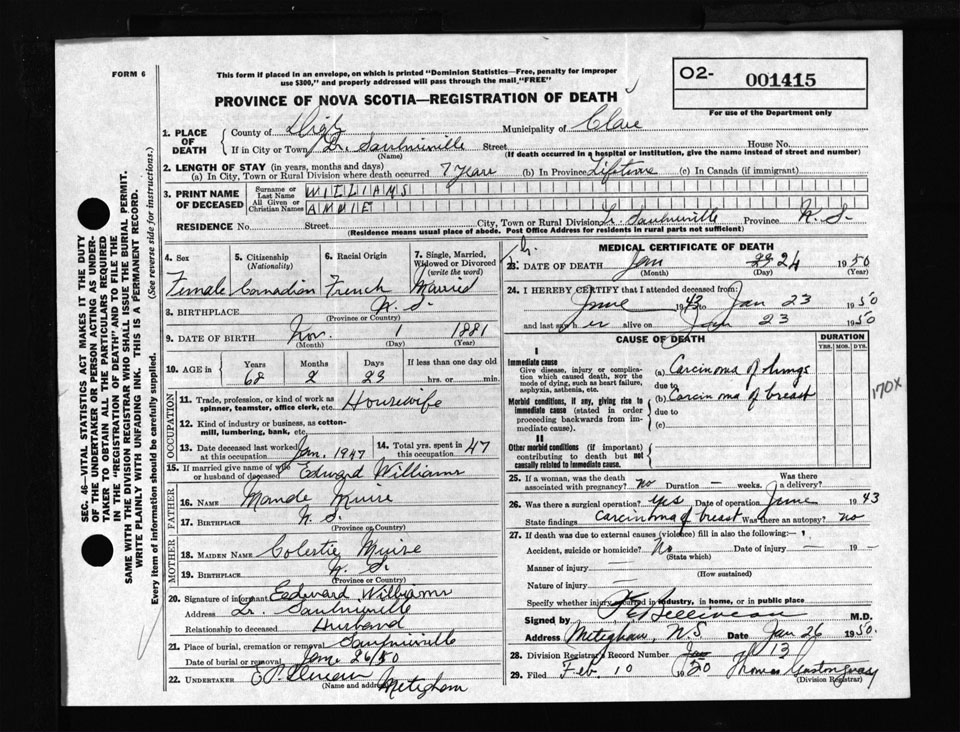 FORM 6
This form if placed in an envelope, on which is printed "Dominion Statistics—Free, penalty for improper
use $300," and properly addressed will pass through the mail, "FREE"
O2- 001415
For use of the Department only
PROVINCE OF NOVA SCOTIA—REGISTRATION OF DEATH
1. PLACE OF DEATH
County of Digby Municipality of Clare
If in City or Town Lr. Saulnierville Street House No.
(Name) (If death occurred in a hospital or institution, give the name instead of street and number)
2. LENGTH OF STAY (in years, months and days)
(a) In City, Town or Rural Division where death occurred 7 years (b) In Province Lifetime (c) In Canada (if immigrant)
3. PRINT NAME OF DECEASED
Surname or Last Name WILLIAMS
All Given or Christian Names ANNIE
RESIDENCE No. Street City, Town or Rural Division Lr. Saulnierville Province N. S.
(Residence means usual place of abode. Post Office Address for residents in rural parts not sufficient)
4. Sex Female
5. Citizenship (Nationality) Canadian
6. Racial Origin French
7. Single, Married, Widowed or Divorced (write the word) Married
8. BIRTHPLACE N. S.
(Province or Country)
9. DATE OF BIRTH Nov. 1 1881
(Month) (Day) (Year)
10. AGE in Years Months Days If less than one day old
68 2 23 hrs. or min.
OCCUPATION
11. Trade, profession, or kind of work as spinner, teamster, office clerk, etc. Housewife
12. Kind of industry or business, as cotton-mill, lumbering, bank, etc.
13. Date deceased last worked at this occupation Jan. 1947
14. Total yrs. spent in this occupation 47
15. If married give name of wife or husband of deceased Edward Williams
FATHER
16. NAME Mande Muise
17. BIRTHPLACE N. S.
(Province or Country)
MOTHER
18. MAIDEN NAME Colestie Muise
19. BIRTHPLACE N. S.
(Province or Country)
20. Signature of informant Eedward Williams
Address Lr. Saulnierville
Relationship to deceased Husband
21. Place of burial, cremation or removal Saulnierville
Date of burial or removal Jan. 26/50
22. UNDERTAKER
(Name and address) Meteghan
MEDICAL CERTIFICATE OF DEATH
23. DATE OF DEATH Jan 24 1950
(Month) (Day) (Year)
24. I HEREBY CERTIFY that I attended deceased from:
June 1943 to Jan 23 1950
and last saw her alive on Jan 23 1950
CAUSE OF DEATH
DURATION
YRS. MOS. DYS.
I
Immediate cause
Give disease, injury or complication which caused death, not the mode of dying, such as heart failure, asphyxia, asthenia, etc.
(a) Carcinoma of lungs
due to
Morbid conditions, if any, giving rise to immediate cause (stated in order proceeding backwards from immediate cause).
(b) Carcinoma of breast
due to
(c)
170X
II
Other morbid conditions (if important) contributing to death but not causally related to immediate cause.
25. If a woman, was the death associated with pregnancy? no Duration — weeks. Was there a delivery?
26. Was there a surgical operation? yes Date of operation June 1943
State findings Carcinoma of breast Was there an autopsy? no
27. If death was due to external causes (violence) fill in also the following:—
Accident, suicide or homicide? No Date of injury — 19 —
(State which)
Manner of injury —
(How sustained)
Nature of injury —
Specify whether injury occurred in industry, in home, or in public place
Signed by M.D.
Address Meteghan, N.S. Date Jan 26 1950.
28. Division Registrar's Record Number 13
29. Filed Feb. 10 1950 Thomas
(Division Registrar)
SEC. 46—VITAL STATISTICS ACT MAKES IT THE DUTY
OF THE UNDERTAKER OR PERSON ACTING AS UNDER-
TAKER TO OBTAIN ALL THE PARTICULARS REQUIRED
IN THE "REGISTRATION OF DEATH" AND TO FILE THE
SAME WITH THE DIVISION REGISTRAR WHO SHALL ISSUE THE BURIAL PERMIT.
WRITE PLAINLY WITH UNFADING INK. THIS IS A PERMANENT RECORD.
Every item of information should be carefully supplied. (See reverse side for instructions.)